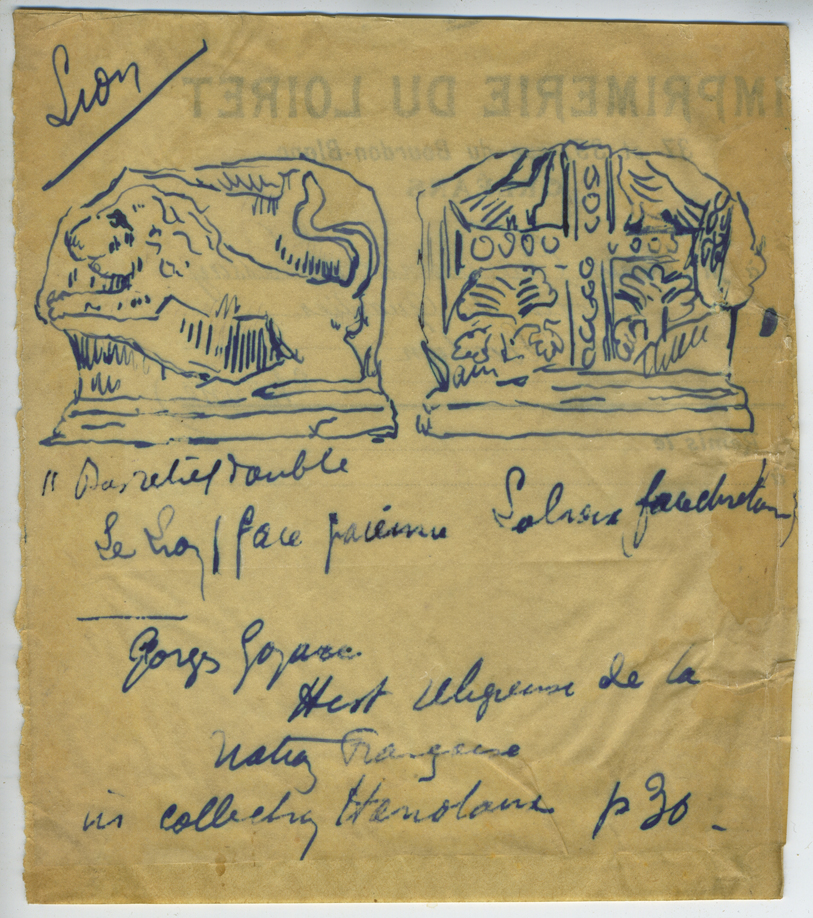 Lion
IMPRIMERIE DU LOIRET
Bourdon-Blanc
" Bas relief double
Le Lion / face païenne La Croix (face chretienne)
Georges Goyau
Hist religieuse de la
Nation Française
in collection Hanotaux p 30.